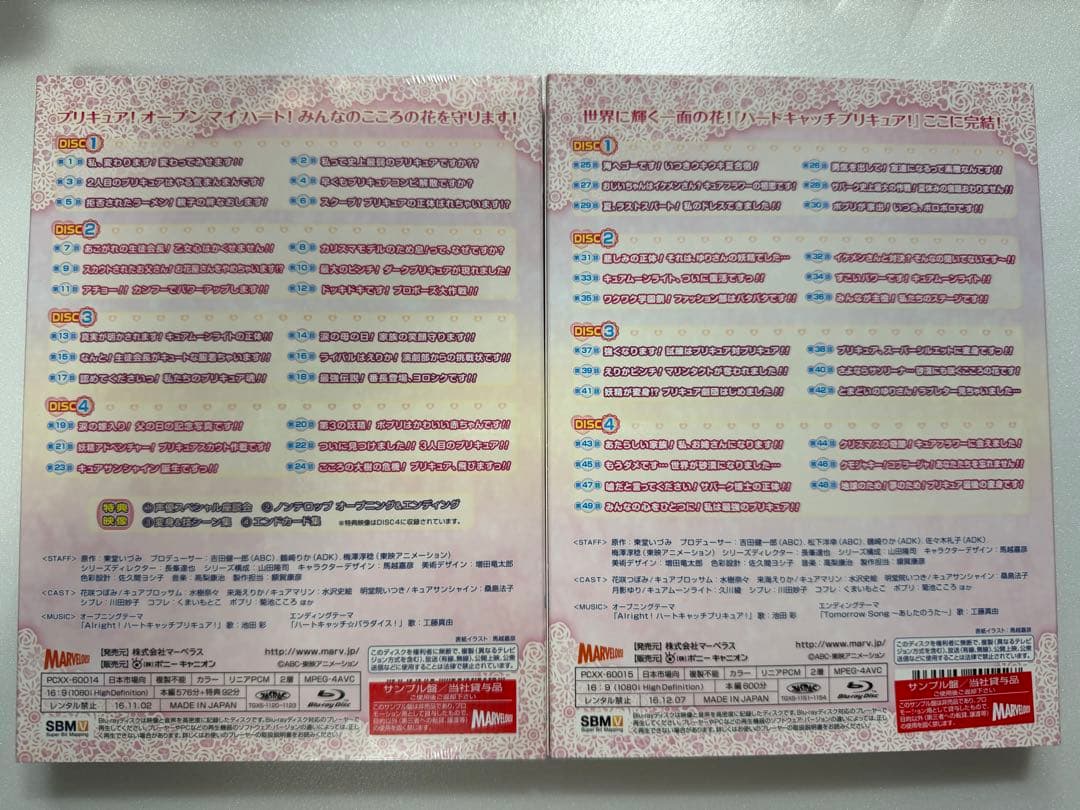 プリキュア!オープンマイハート!みんなのこころの花を守ります!
DISC1
第1回 私、変わります!変わってみせます!!
第2回 私って史上最弱のプリキュアですか??
第3回 2人目のプリキュアはやる気まんまんです!
第4回 早くもプリキュアコンビ解散ですか?
第5回 拒否されたラーメン!親子の絆なおします!
第6回 スクープ!プリキュアの正体ばれちゃいます!?
DISC2
第7回 あこがれの生徒会長!乙女心はかくせません!!
第8回 カリスマモデルのため息!って、なぜですか?
第9回 スカウトされたお父さん!お花屋さんをやめちゃいます!?
第10回 最大のピンチ!ダークプリキュアが現れました!
第11回 アチョー!!カンフーでパワーアップします!!
第12回 ドッキドキです!プロポーズ大作戦!!
DISC3
第13回 真実が明かされます!キュアムーンライトの正体!!
第14回 涙の母の日!家族の笑顔守ります!
第15回 なんと!生徒会長がキュートな服着ちゃいます!!
第16回 ライバルはえりか!演劇部からの挑戦状です!!
第17回 認めてくださいっ!私たちのプリキュア魂!!
第18回 最強伝説!番長登場、ヨロシクです!!
DISC4
第19回 涙の嫁入り!父の日の記念写真です!!
第20回 第3の妖精!ポプリはかわいい赤ちゃんです!!
第21回 妖精アドベンチャー!プリキュアスカウト作戦です!
第22回 ついに見つけました!!3人目のプリキュア!!
第23回 キュアサンシャイン誕生ですっ!!
第24回 こころの大樹の危機!プリキュア、飛びますっっ!!
特典映像
①声優スペシャル座談会 ②ノンテロップ オープニング&エンディング
③変身&技シーン集 ④エンドカード集 ※特典映像はDISC4に収録されています。
<STAFF> 原作:東堂いづみ プロデューサー:吉田健一郎(ABC)、鶴崎りか(ADK)、梅澤淳稔(東映アニメーション)
シリーズディレクター:長峯達也 シリーズ構成:山田隆司 キャラクターデザイン:馬越嘉彦 美術デザイン:増田竜太郎
色彩設計:佐久間ヨシ子 音楽:高梨康治 製作担当:額賀康彦
<CAST> 花咲つぼみ/キュアブロッサム:水樹奈々 来海えりか/キュアマリン:水沢史絵 明堂院いつき/キュアサンシャイン:桑島法子
シプレ:川田妙子 コフレ:くまいもとこ ポプリ:菊池こころ ほか
<MUSIC> オープニングテーマ エンディングテーマ
「Alright!ハートキャッチプリキュア!」歌:池田 彩 「ハートキャッチ☆パラダイス!」歌:工藤真由
表紙イラスト:馬越嘉彦
MARVELOUS!
【発売元】株式会社マーベラス http://www.marv.jp/
【販売元】(株)ポニーキャニオン ©ABC・東映アニメーション
PCXX-60014 日本市場向 複製不能 カラー リニアPCM 2層 MPEG-4AVC
16:9(1080i High Definition) 本編576分+特典92分
レンタル禁止 16.11.02 MADE IN JAPAN TGXS-1120-1123 Blu-ray Disc
サンプル盤/当社貸与品
ご使用後ご返却下さい
MARVELOUS!
SBMV
Super Bit Mapping
世界に輝く一面の花!『ハートキャッチプリキュア!』ここに完結!
DISC1
第25回 海へゴーです!いつきウキウキ夏合宿!
第26回 勇気を出して!友達になるって素敵なんです!!
第27回 おじいちゃんはイケメンさん?キュアフラワーの初恋です!
第28回 サバーク史上最大の作戦!夏休みの宿題おわりません!!
第29回 夏、ラストスパート!私のドレスできました!!
第30回 ポプリが家出!いつき、ボロボロです!!
DISC2
第31回 悲しみの正体!それは、ゆりさんの妖精でした…
第32回 イケメンさんと対決?そんなの聞いてないです~!
第33回 キュアムーンライト、ついに復活ですっ!!
第34回 すごいパワーです!キュアムーンライト!!
第35回 ワクワク学園祭!ファッション部はバタバタです!!
第36回 みんなが主役!私たちのステージです!!
DISC3
第37回 強くなります!試練はプリキュア対プリキュア!!
第38回 プリキュア、スーパーシルエットに変身ですっ!!
第39回 えりかピンチ!マリンタクトが奪われました!!
第40回 さよならサソリーナ…砂漠にも咲くこころの花です!
第41回 妖精が変身!?プリキュア劇団はじめました!!
第42回 とまどいのゆりさん!ラブレター見ちゃいました…
DISC4
第43回 あたらしい家族!私、お姉さんになります!!
第44回 クリスマスの奇跡!キュアフラワーに会えました!
第45回 もうダメです…世界が砂漠になりました…
第46回 クモジャキー!コブラージャ!あなたたちを忘れません!!
第47回 嘘だと言ってください!サバーク博士の正体!!
第48回 地球のため!夢のため!プリキュア最後の変身です!
第49回 みんなの心をひとつに!私は最強のプリキュア!!
<STAFF> 原作:東堂いづみ プロデューサー:吉田健一郎(ABC)、松下洋幸(ABC)、鶴崎りか(ADK)、佐々木礼子(ADK)
梅澤淳稔(東映アニメーション) シリーズディレクター:長峯達也 シリーズ構成:山田隆司 キャラクターデザイン:馬越嘉彦
美術デザイン:増田竜太郎 色彩設計:佐久間ヨシ子 音楽:高梨康治 製作担当:額賀康彦
<CAST> 花咲つぼみ/キュアブロッサム:水樹奈々 来海えりか/キュアマリン:水沢史絵 明堂院いつき/キュアサンシャイン:桑島法子
月影ゆり/キュアムーンライト:久川綾 シプレ:川田妙子 コフレ:くまいもとこ ポプリ:菊池こころ ほか
<MUSIC> オープニングテーマ エンディングテーマ
「Alright!ハートキャッチプリキュア!」歌:池田 彩 「Tomorrow Song ~あしたのうた~」歌:工藤真由
表紙イラスト:馬越嘉彦
MARVELOUS!
【発売元】株式会社マーベラス http://www.marv.jp/
【販売元】(株)ポニーキャニオン ©ABC・東映アニメーション
PCXX-60015 日本市場向 複製不能 カラー リニアPCM 2層 MPEG-4AVC
16:9(1080i High Definition) 本編600分
レンタル禁止 16.12.07 MADE IN JAPAN TGXS-1151-1154 Blu-ray Disc
サンプル盤/当社貸与品
ご使用後ご返却下さい
MARVELOUS!
SBMV
Super Bit Mapping